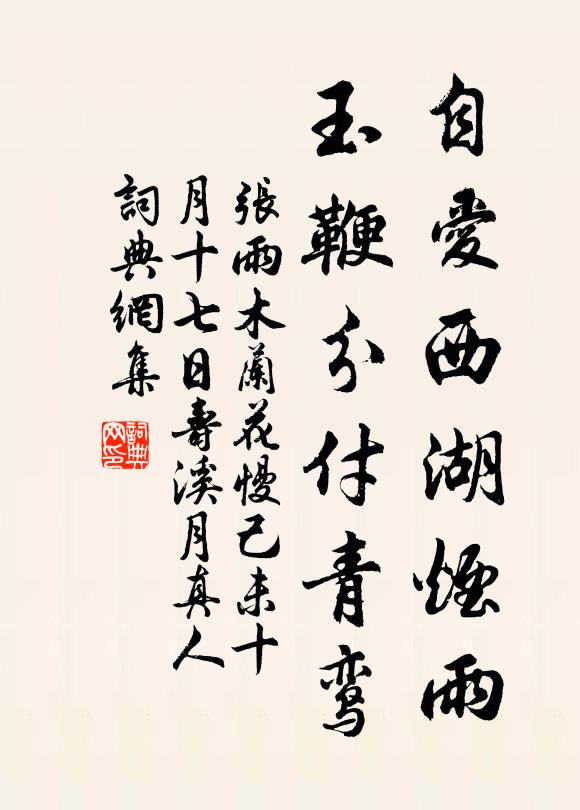 自愛西湖煙雨
玉鞭分付青鸾
張雨木蘭花慢己未十
月十七日壽溪月真人
詞典網集
詞典网印